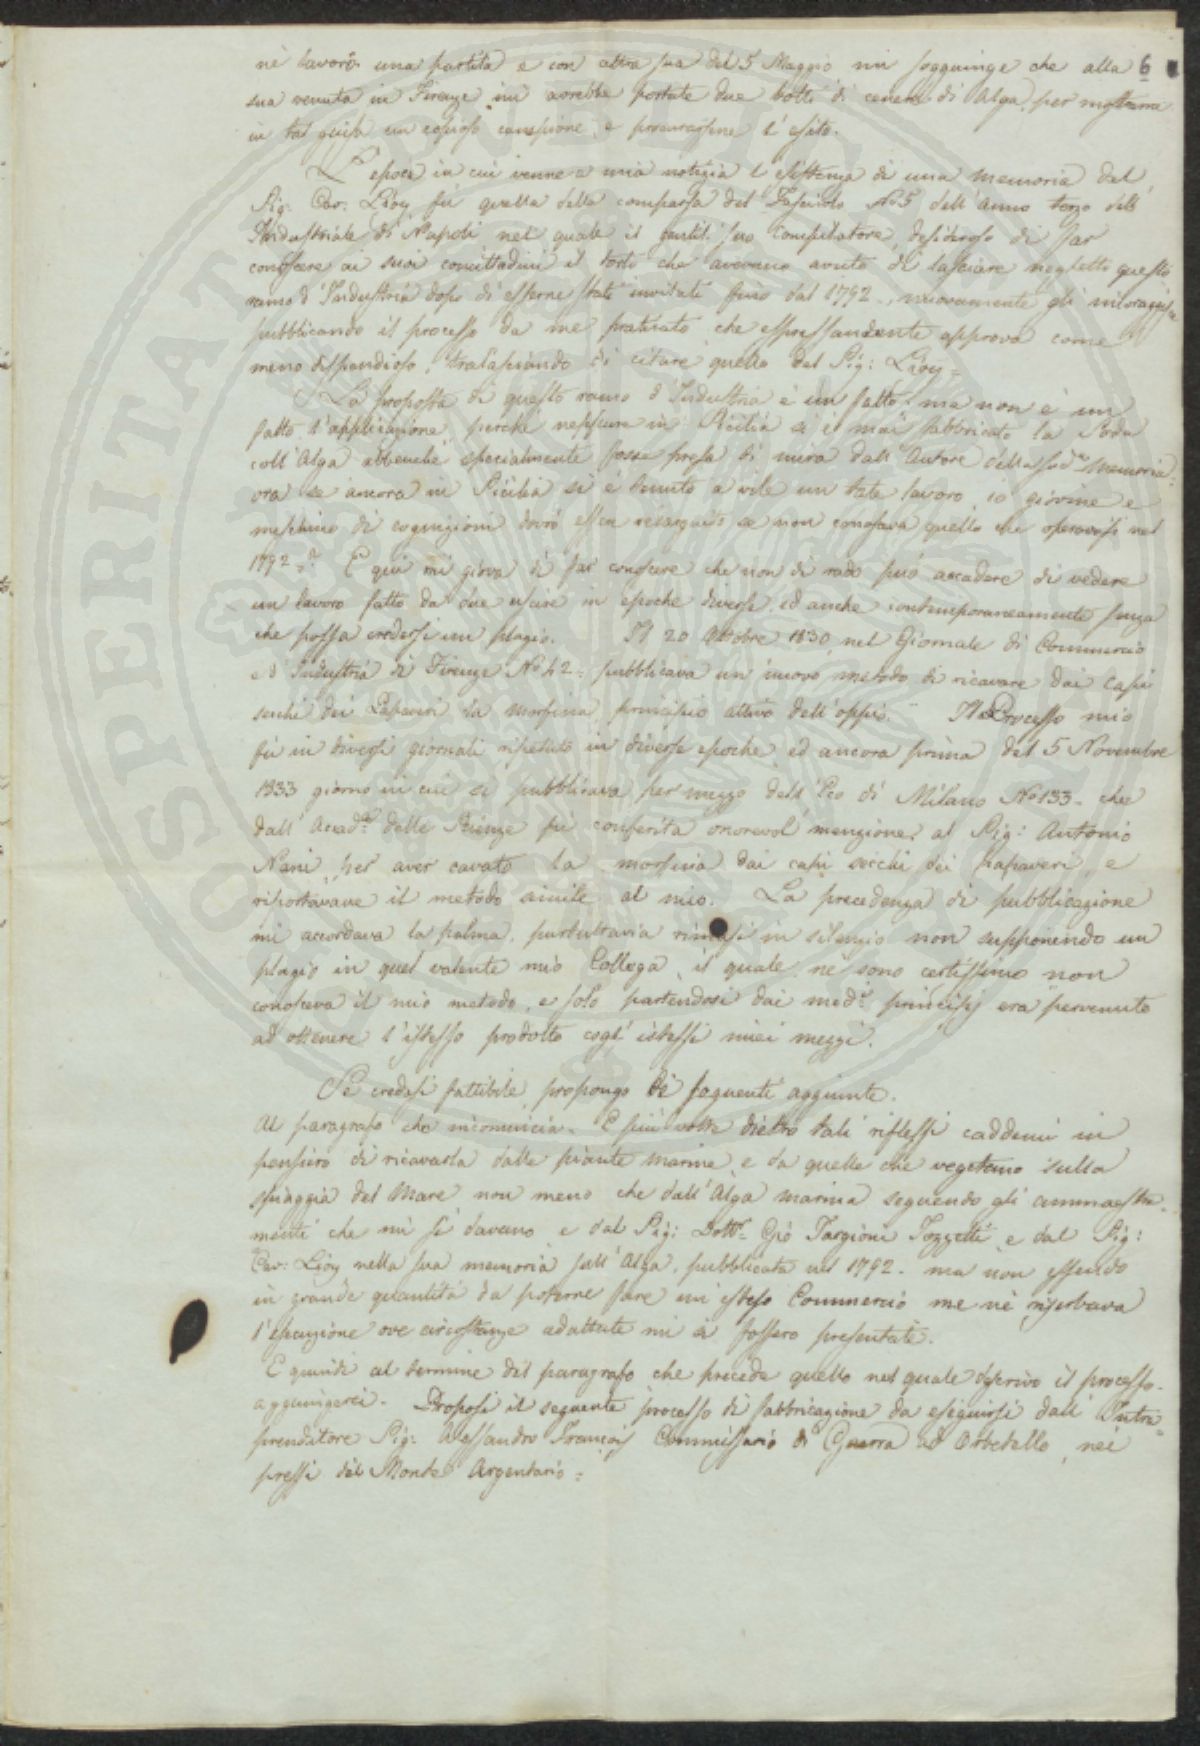 6
nè lavorò una partita e con altra sua del 5 Maggio mi soggiunge che alla
sua venuta in Firenze mi avrebbe portate due botti di cenere di Alga per mostrarne
in tal guisa un copioso campione, e procurarsene l'esito.
L'epoca in cui venne a mia notizia l'esistenza di una memoria del
Sig: Cav: Lioy fù quella della comparsa del Fascicolo No 5 dell'Anno terzo dell'
Industriale di Napoli nel quale il gentil suo Compilatore, desideroso di far
conoscere ai suoi concittadini il torto che avevano avuto di lasciare negletto questo
ramo d'Industria dopo di esserne stati invitati fino dal 1792, nuovamente gli incoraggisce
pubblicando il processo da me praticato che espressamente approva come
meno dispendioso, tralasciando di citare quello del Sig: Lioy =
La proposta di questo ramo d'Industria è un fatto, ma non è un
fatto l'applicazione, perchè neppure in Sicilia si è mai fabbricato la Soda
coll'Alga abbenchè specialmente fosse presa di mira dall'Autore della sudª Memoria:
ora se ancora in Sicilia si è tenuto a vile un tale lavoro, io giovine e
meschino di cognizioni dovrò esser redarguito se non conosceva quello che operavasi nel
1792 =? E quì mi giova di far conoscere che non di rado può accadere di vedere
un lavoro fatto da due uscire in epoche diverse, ed anche contemporaneamente senza
che possa credersi un plagio. Il 20 Ottobre 1830 nel Giornale di Commercio
e d'Industria di Firenze No 42 = pubblicava un nuovo metodo di ricavare dai capi
secchi dei Papaveri la morfina principio attivo dell'oppio. Il Processo mio
fù in diversi giornali ripetuto in diverse epoche, ed ancora prima del 5 Novembre
1833 giorno in cui si pubblicava per mezzo dell'Eco di Milano No 133 - che
dall'Accadª delle Scienze fù conferita onorevol menzione al Sig: Antonio
Nani, per aver cavato la morfina dai capi secchi dei papaveri, e
riportavane il metodo simile al mio. La precedenza di pubblicazione
mi accordava la palma, purtuttavia rimasi in silenzio non supponendo un
plagio in quel valente mio Collega, il quale, ne sono certissimo non
conosceva il mio metodo, e solo partendosi dai medⁱ principij era pervenuto
ad ottenere l'istesso prodotto cogl'istessi miei mezzi.
Se credasi fattibile propongo le seguenti aggiunte.
Al paragrafo che incomincia = E più volte dietro tali riflessi caddemi in
pensiero di ricavarla dalle piante marine, e da quelle che vegetano sulla
spiaggia del Mare non meno che dall'Alga marina seguendo gli ammaestra-
menti che mi si davano e dal Sig: Dottr Gio Targioni Tozzetti e dal Sig:
Cav: Lioy nella sua memoria sull'Alga, pubblicata nel 1792 - ma non essendo
in grande quantità da poterne fare un esteso Commercio me ne riserbava
l'esecuzione ove circostanze adattate mi si fossero presentate.
E quindi al termine del paragrafo che precede quello nel quale descrivo il processo
aggiungerei - Proposi il seguente processo di fabbricazione da eseguirsi dall'Intra-
prenditore Sig: Alessandro François Commissario di Guerra ad Orbetello, nei
pressi del Monte Argentario =